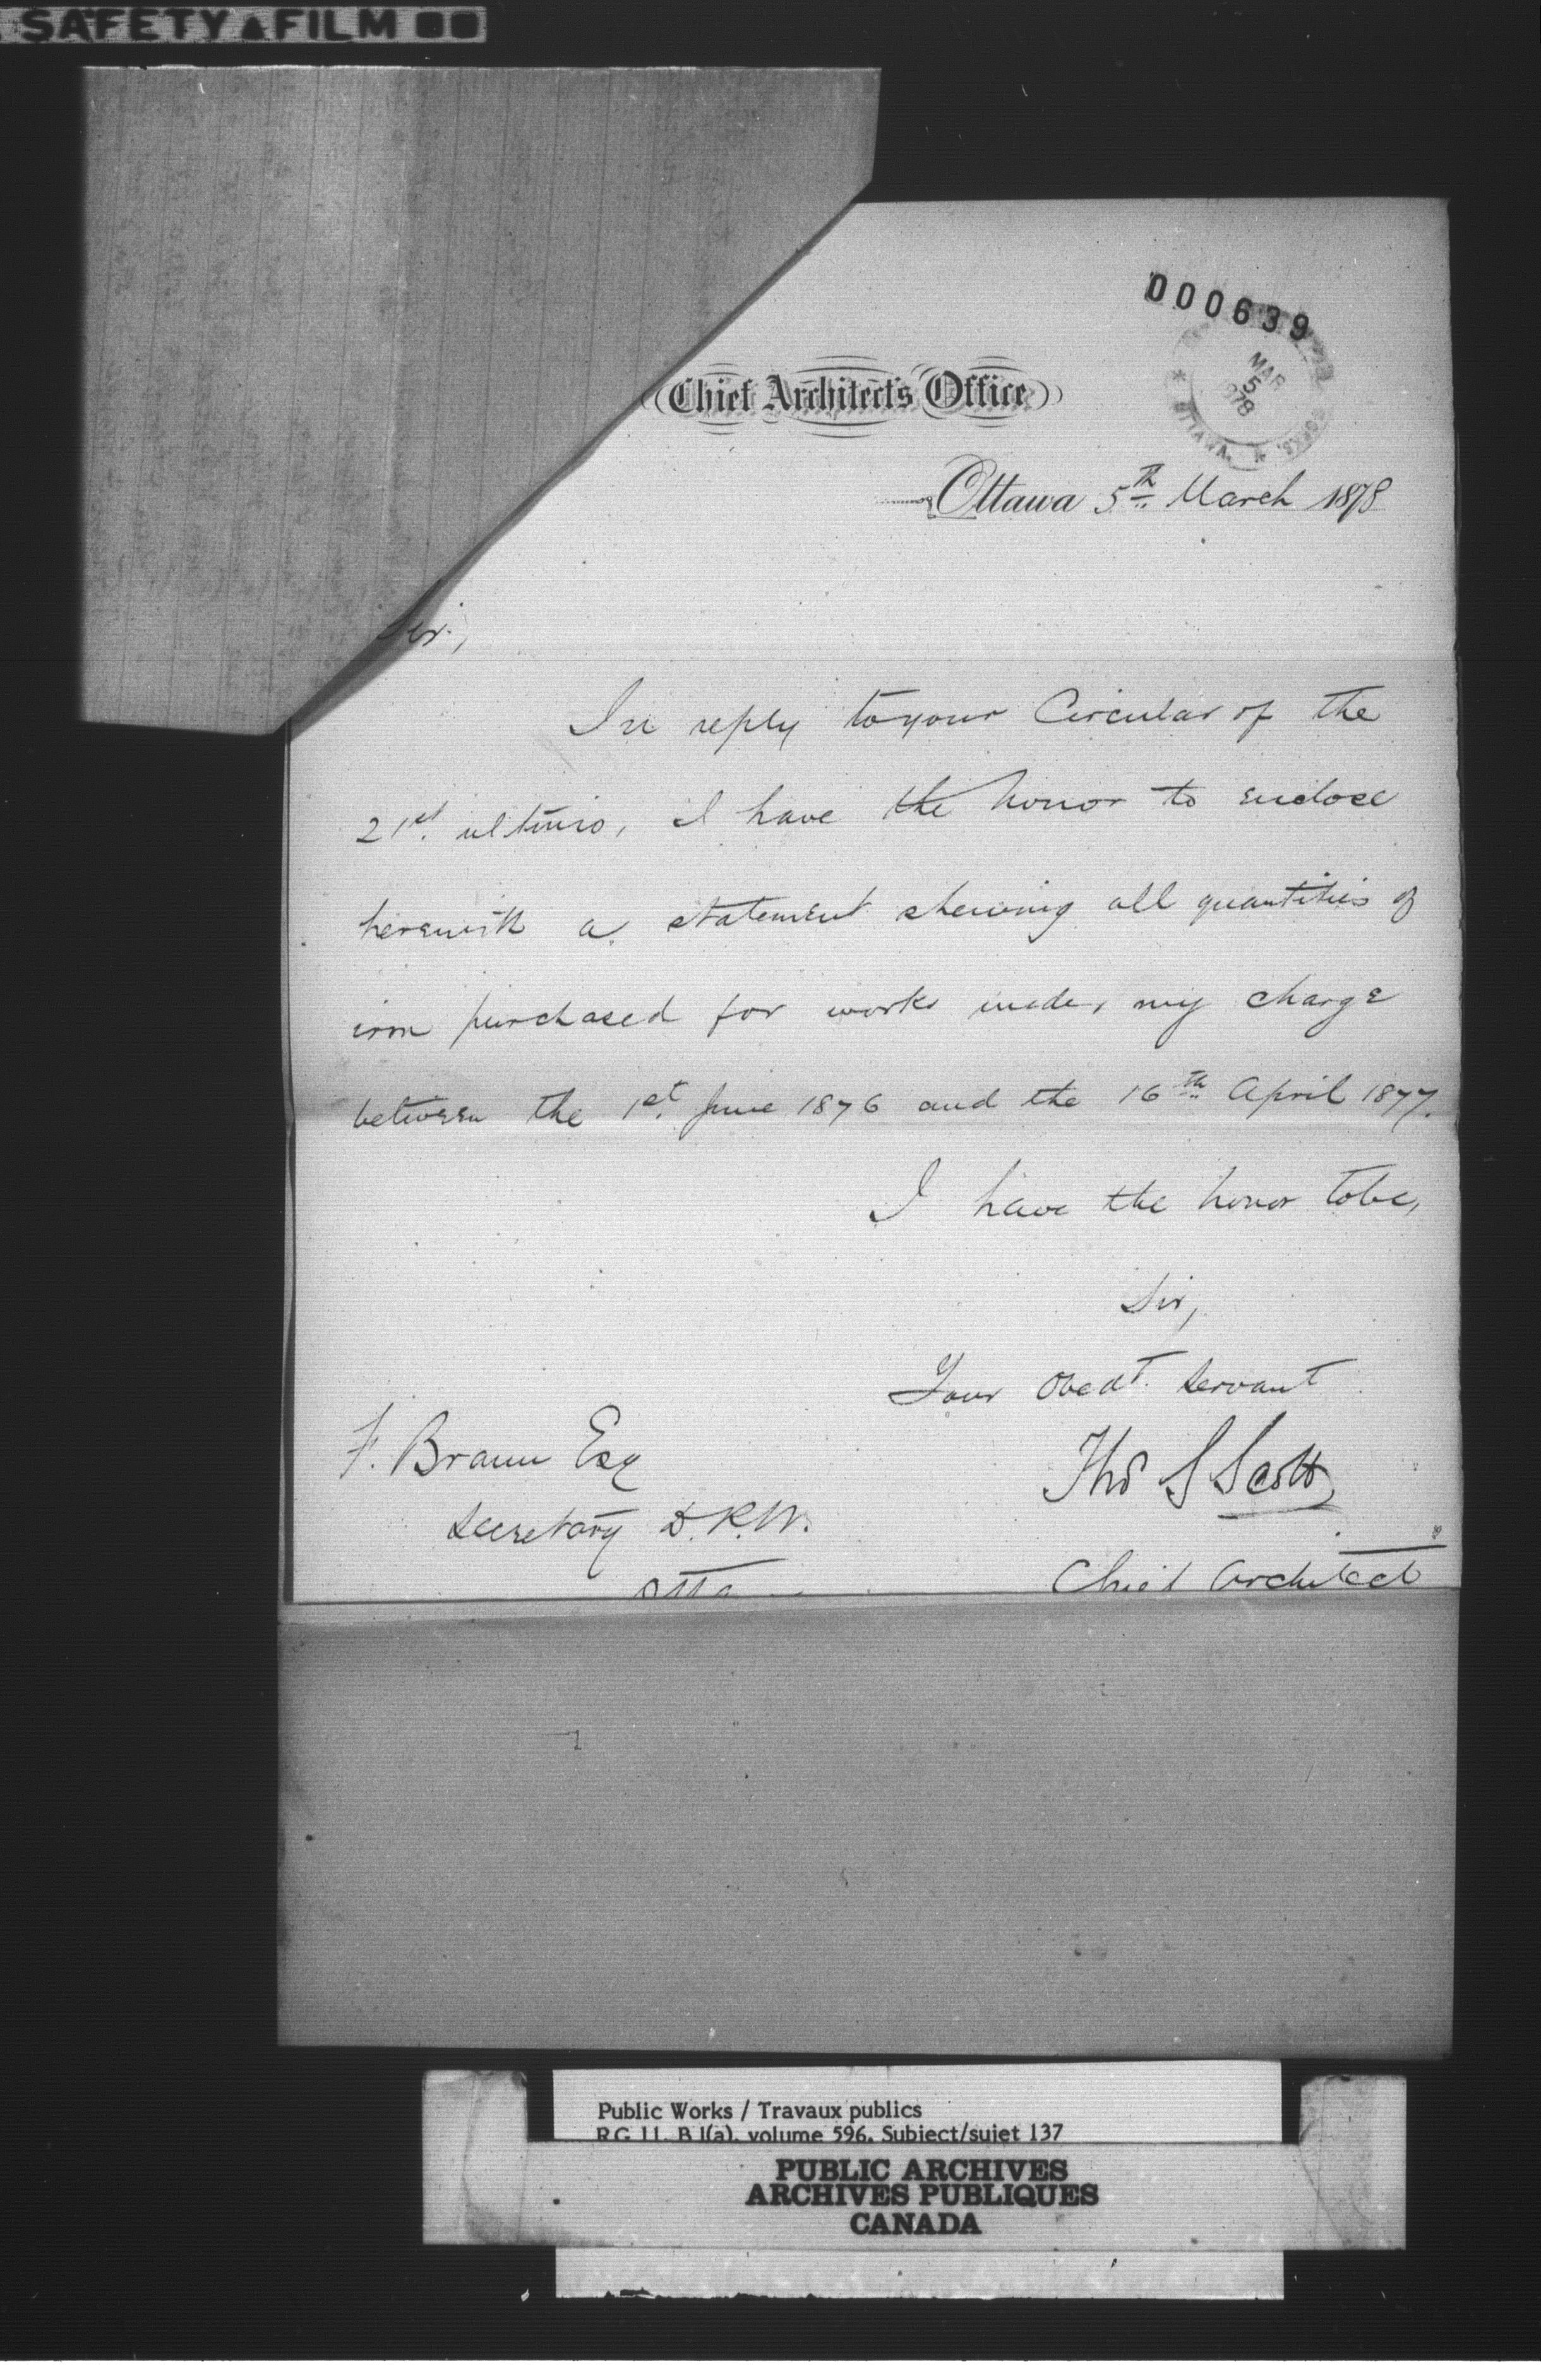 SAFETY▲FILM
000639
MAR
5
1878
OTTAWA
WORKS.
Chief Architect's Office
Ottawa 5th March 1878
Sir,
In reply to your Circular of the
21st. ultimo, I have the honor to enclose
herewith a statement shewing all quantities of
iron purchased for works under my charge
between the 1st. June 1876 and the 16th April 1877.
I have the honor to be,
Sir,
Your Obedt. Servant
Thos S Scott
Chief Architect
F. Braun Esq
Secretary D.P.W.
Otta
Public Works / Travaux publics
RG 11, B 1(a), volume 596, Subject/sujet 137
PUBLIC ARCHIVES
ARCHIVES PUBLIQUES
CANADA